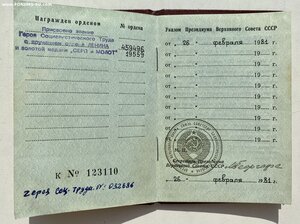 FORUM-SU.COM
Награжден орденом
№ ордена
Присвоено звание
Героя Социалистического Труда
с вручением ордена ЛЕНИНА
и золотой медали „СЕРП и МОЛОТ"
459496
19559
К № 123110
Герой Соц. Труда № 032686
Указом Президиума Верховного Совета СССР
от 26 февраля 1981 г.
от 19 г.
от 19 г.
от 19 г.
от 19 г.
от 19 г.
от 19 г.
Секретарь Президиума
Верховного Совета СССР
26 февраля 1981 г.